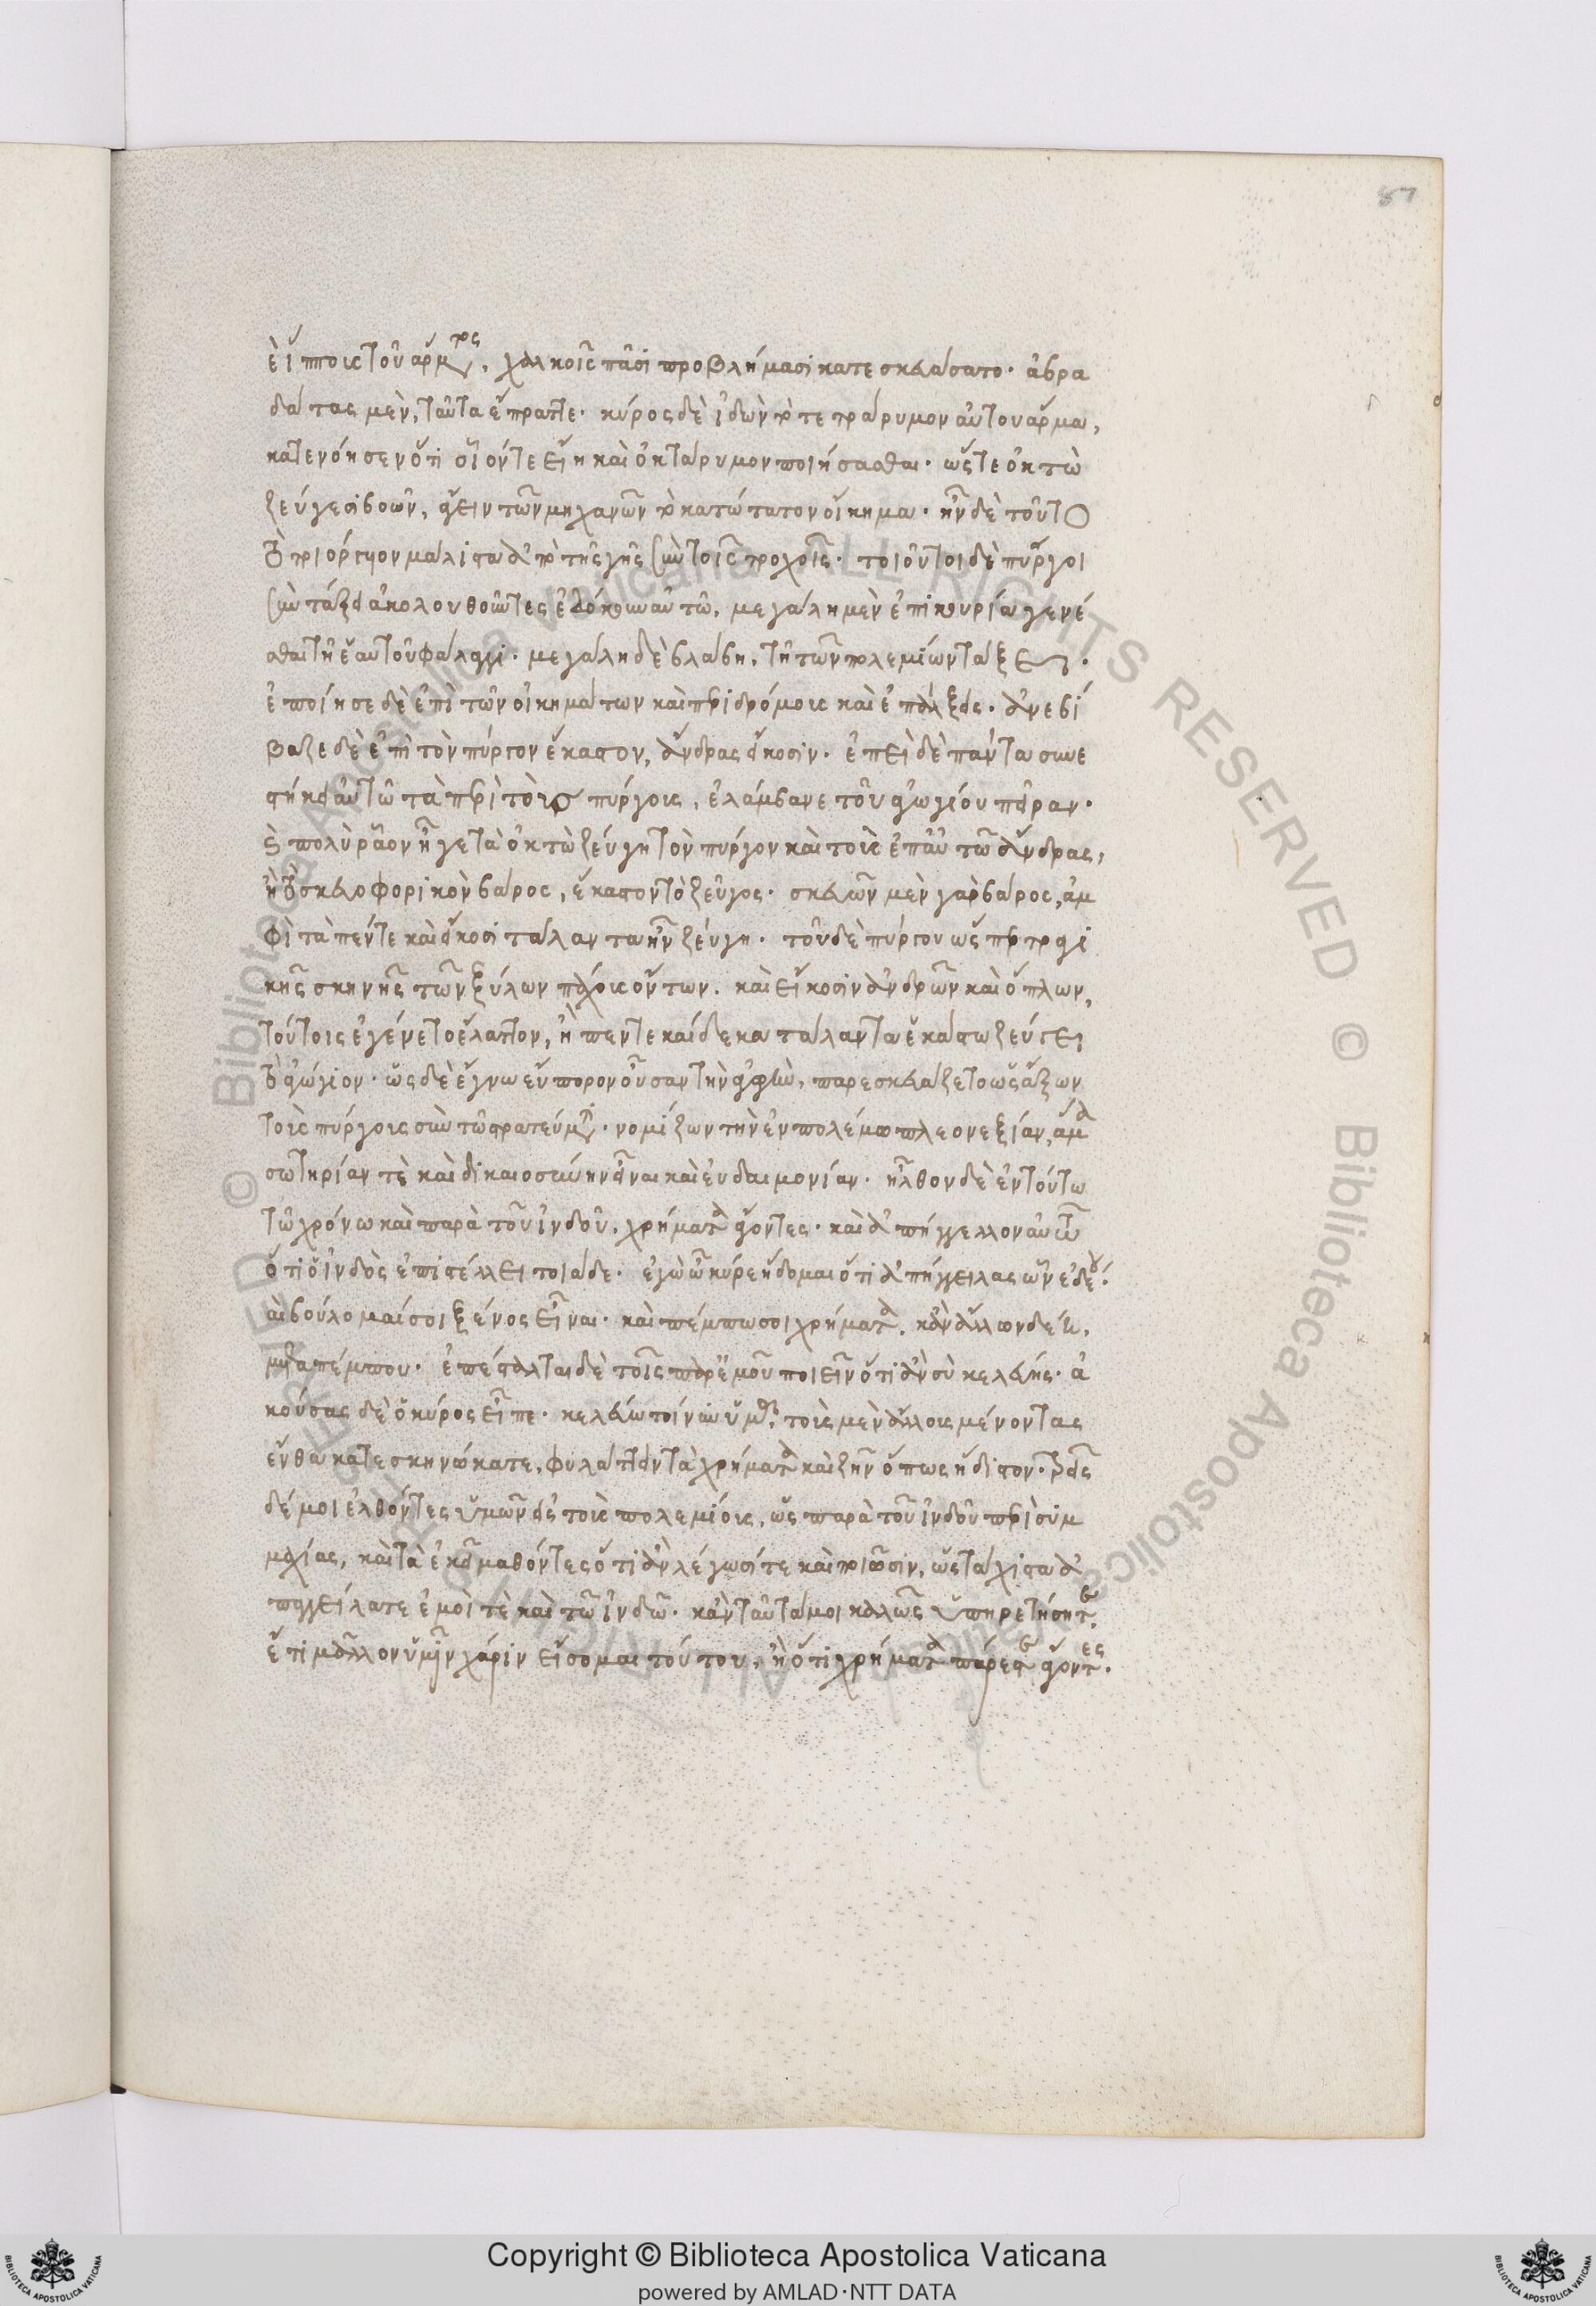 87
ἐ ἵπποις τοῦ ἅρματος, χαλκοῖς πᾶσι προβλήμασι κατεσκευάσατο. ἀβρα
δάτας μὲν, ταῦτα ἔπραττε. κύρος δὲ ἰδὼν τὸ τετράρυμον αὐτοῦ ἅρμα,
κατενόησεν ὅτι οἷόν τε εἴη καὶ ὀκτάρυμον ποιήσασθαι. ὥστε ὀκτὼ
ζεύγεσι βοῶν, ἄγειν τῶν μηχανῶν τὸ κατώτατον οἴκημα. ἦν δὲ τοῦτο
τὸ τριόργυον μάλιστα ἀπὸ τῆς γῆς σὺν τοῖς τροχοῖς. τοιοῦτοι δὲ πύργοι
σὺν τάξει ἀκολουθοῦντες ἐδόκουν αὐτῶ, μεγάλη μὲν ἐπικουρία γενέ
σθαι τῆ ἑαυτοῦ φάλαγγι. μεγάλη δὲ βλάβη, τῆ τῶν πολεμίων τάξει.
ἐποίησε δὲ ἐπὶ τῶν οἰκημάτων καὶ περιδρόμους καὶ ἐπάλξεις. ἀνεβί
βαζε δὲ ἐπὶ τὸν πύργον ἕκαστον, ἄνδρας εἴκοσιν. ἐπεὶ δὲ πάντα συνε
στήκει αὐτῶ τὰ περὶ τοὺς πύργους, ἐλάμβανε τοῦ ἀγωγίου πεῖραν.
καὶ πολὺ ρᾶον ἦγε τὰ ὀκτὼ ζεύγη τὸν πύργον καὶ τοὺς ἐπ' αὐτῶ ἄνδρας,
ἢ τὸ σκευοφορικὸν βάρος, ἕκαστον τὸ ζεῦγος. σκευῶν μὲν γὰρ βάρος, ἀμ
φὶ τὰ πέντε καὶ εἴκοσι τάλαντα ἦν ζεύγη. τοῦ δὲ πύργου ὥσπερ τραγι
κῆς σκηνῆς τῶν ξύλων πάχους ὄντων. καὶ εἴκοσιν ἀνδρῶν καὶ ὅπλων,
τούτοις ἐγένετο ἔλαττον, ἢ πεντεκαίδεκα τάλαντα ἑκάστω ζεύγει
τὸ ἀγώγιον. ὡς δὲ ἔγνω εὔπορον οὖσαν τὴν ἀγωγὴν, παρεσκευάζετο ὡς ἄξων
τοὺς πύργους σὺν τῶ στρατεύματι. νομίζων τὴν ἐν πολέμω πλεονεξίαν, ἅμα
σωτηρίαν τὲ καὶ δικαιοσύνην εἶναι καὶ εὐδαιμονίαν. ἦλθον δὲ ἐν τούτω
τῶ χρόνω καὶ παρὰ τοῦ ἰνδοῦ, χρήματα ἄγοντες. καὶ ἀπήγγελλον αὐτῶ
ὅτι ὁ ἰνδὸς ἐπιστέλλει τοιάδε. ἐγὼ ὦ κύρε ἥδομαι ὅτι ἀπήγγειλας ὧν ἐδέου.
καὶ βούλομαί σοι ξένος εἶναι. καὶ πέμπω σοι χρήματα. κἂν ἄλλων δέη,
μεταπέμπου. ἐπέσταλται δὲ τοῖς παρ' ἐμοῦ ποιεῖν ὅτι ἂν σὺ κελεύης. ἀ
κούσας δὲ ὁ κύρος εἶπε. κελεύω τοίνυν ὑμᾶς, τοὺς μὲν ἄλλους μένοντας
ἔνθα κατεσκηνώκατε, φυλάττειν τὰ χρήματα καὶ ζῆν ὅπως ἥδιστον. τρεῖς
δέ μοι ἐλθόντες ὑμῶν εἰς τοὺς πολεμίους, ὡς παρὰ τοῦ ἰνδοῦ περὶ συμ
μαχίας, καὶ τὰ ἐκεῖ μαθόντες ὅτι ἂν λέγωσί τε καὶ ποιῶσιν, ὡς τάχιστα ἀ
παγγείλατε ἐμοὶ τὲ καὶ τῶ ἰνδῶ. κἂν ταῦτά μοι καλῶς ὑπηρετήσητε,
ἔτι μᾶλλον ὑμῖν χάριν εἴσομαι τούτου, ἢ ὅτι χρήματα πάρεστε ἄγοντες.
Copyright © Biblioteca Apostolica Vaticana
powered by AMLAD·NTT DATA